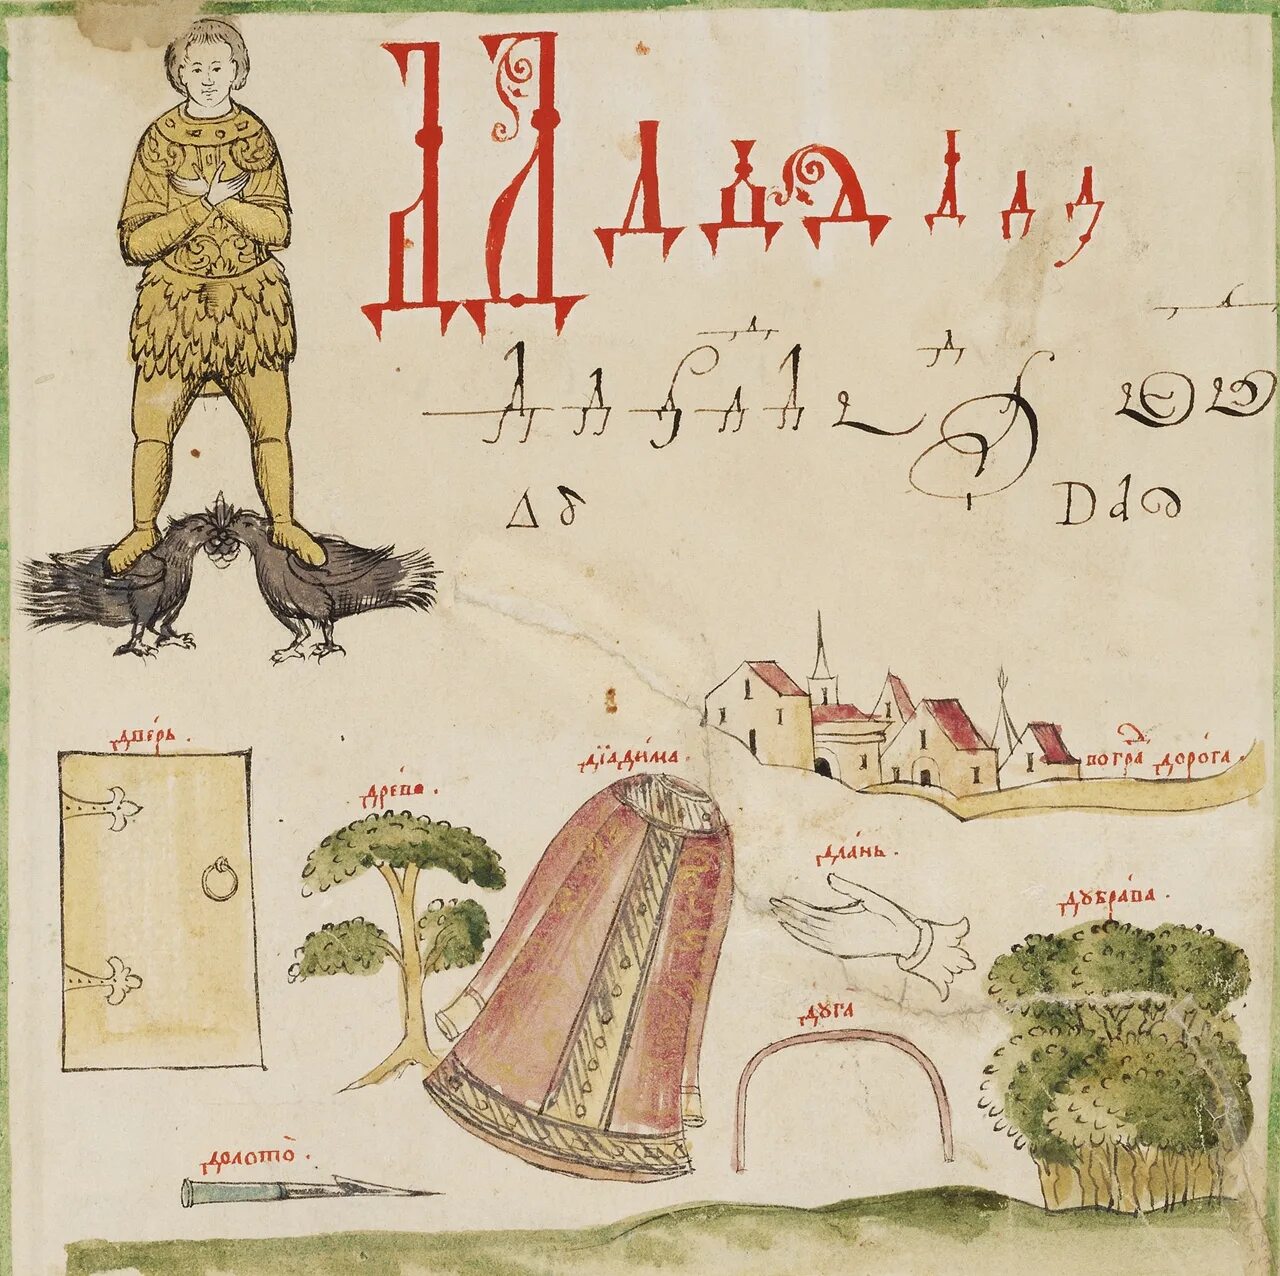 Д Д Д Д Д Д Д Д
Д Д Д Д Д Д Д
Δ δ D d
две́рь .
дре́во .
дїади́ма .
вогра д доро́га .
дла́нь .
дꙋбра́ва .
дꙋга
долото̀ .